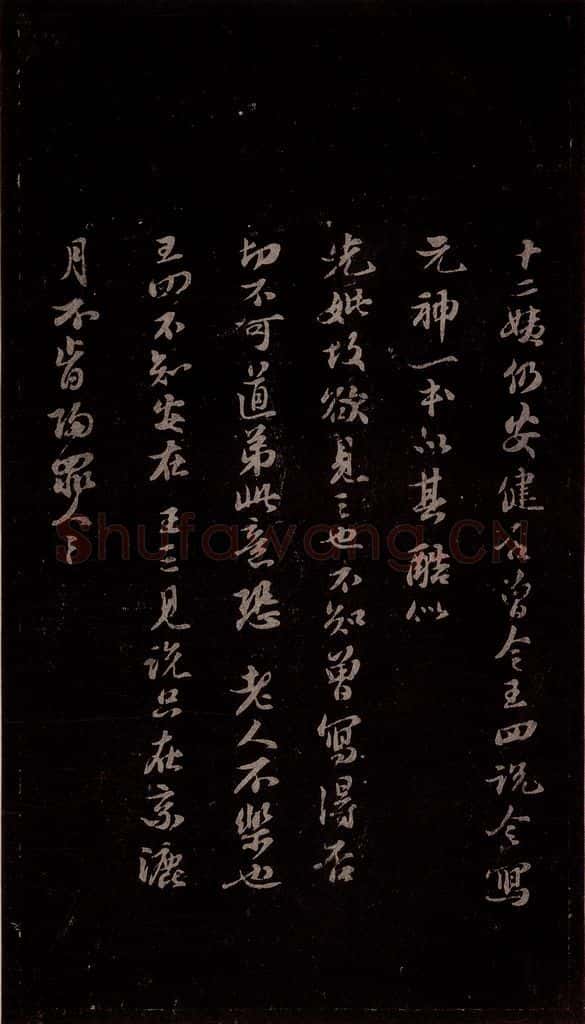 十二姨仍安健否曾令王四说令寫
元神一本以其酷似
先妣故欲見之也不知曾寫得否
切不可道弟此意恐 老人不樂也
王四不知安在 王三見说只在京漉
月不肯歸罪人
ShufaWang.CN